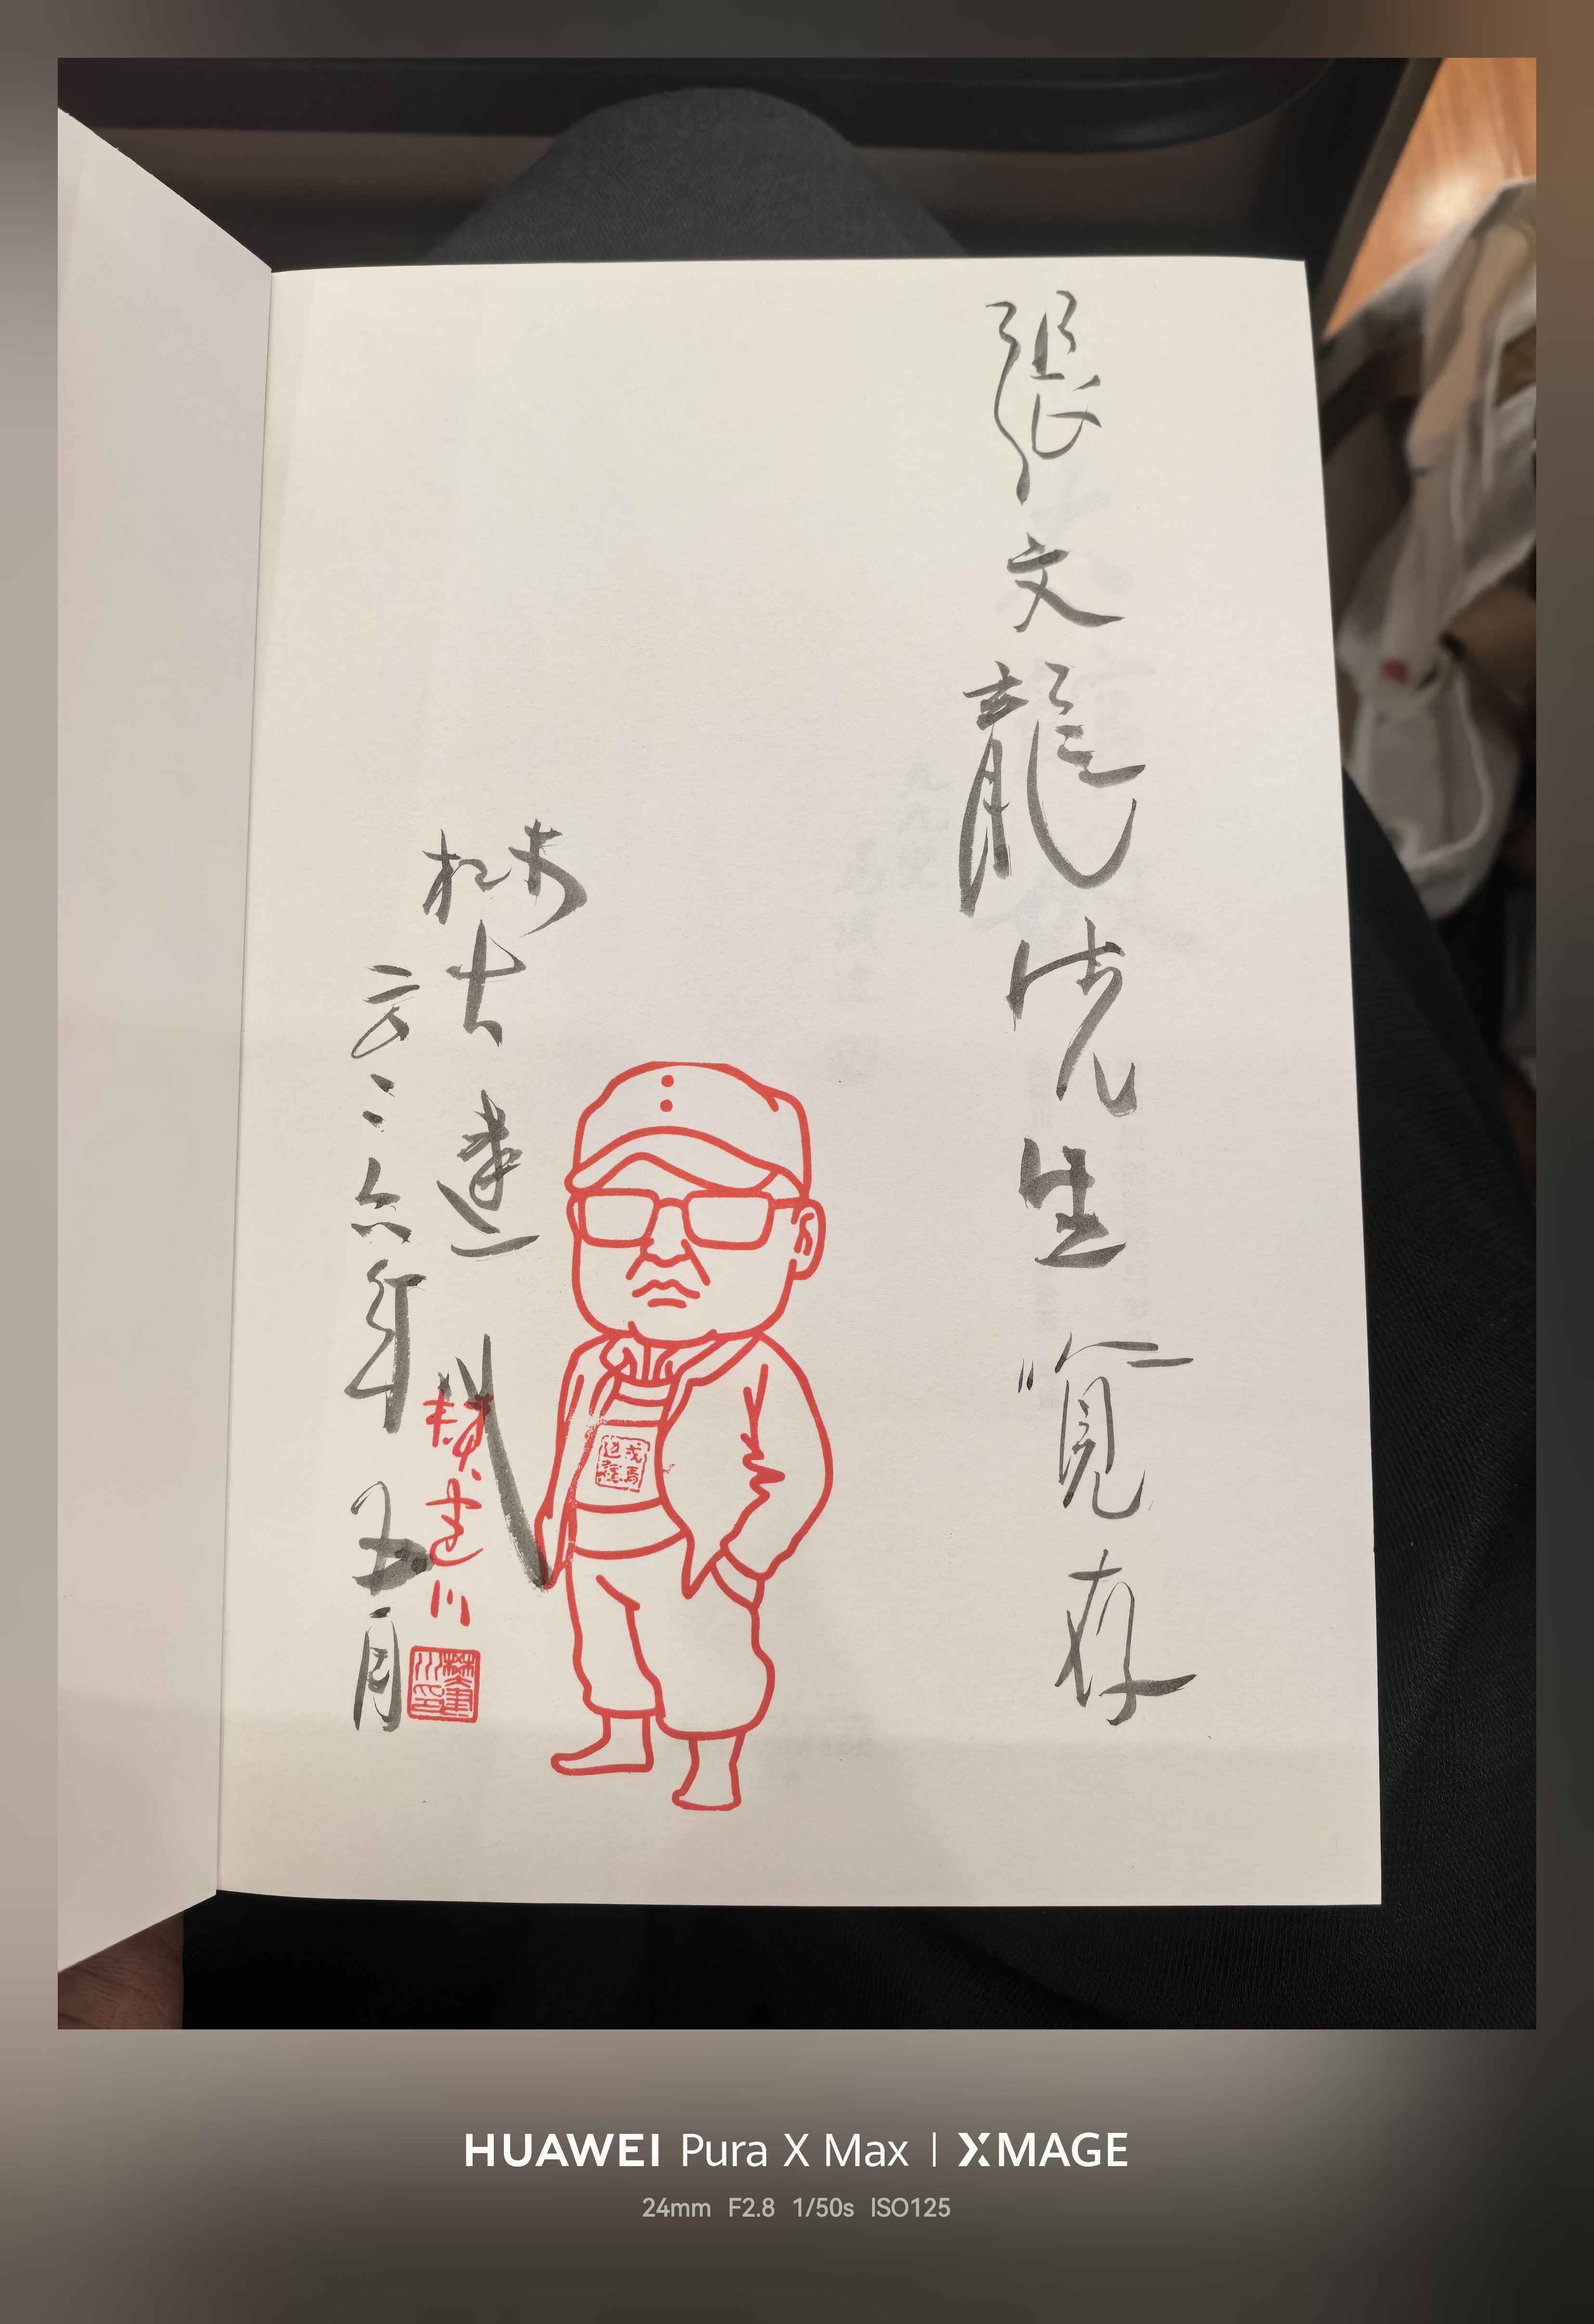 張文龍先生覽存
樊建川
二〇二六年五月
樊建川
樊建川印
HUAWEI Pura X Max | XMAGE
24mm F2.8 1/50s ISO125